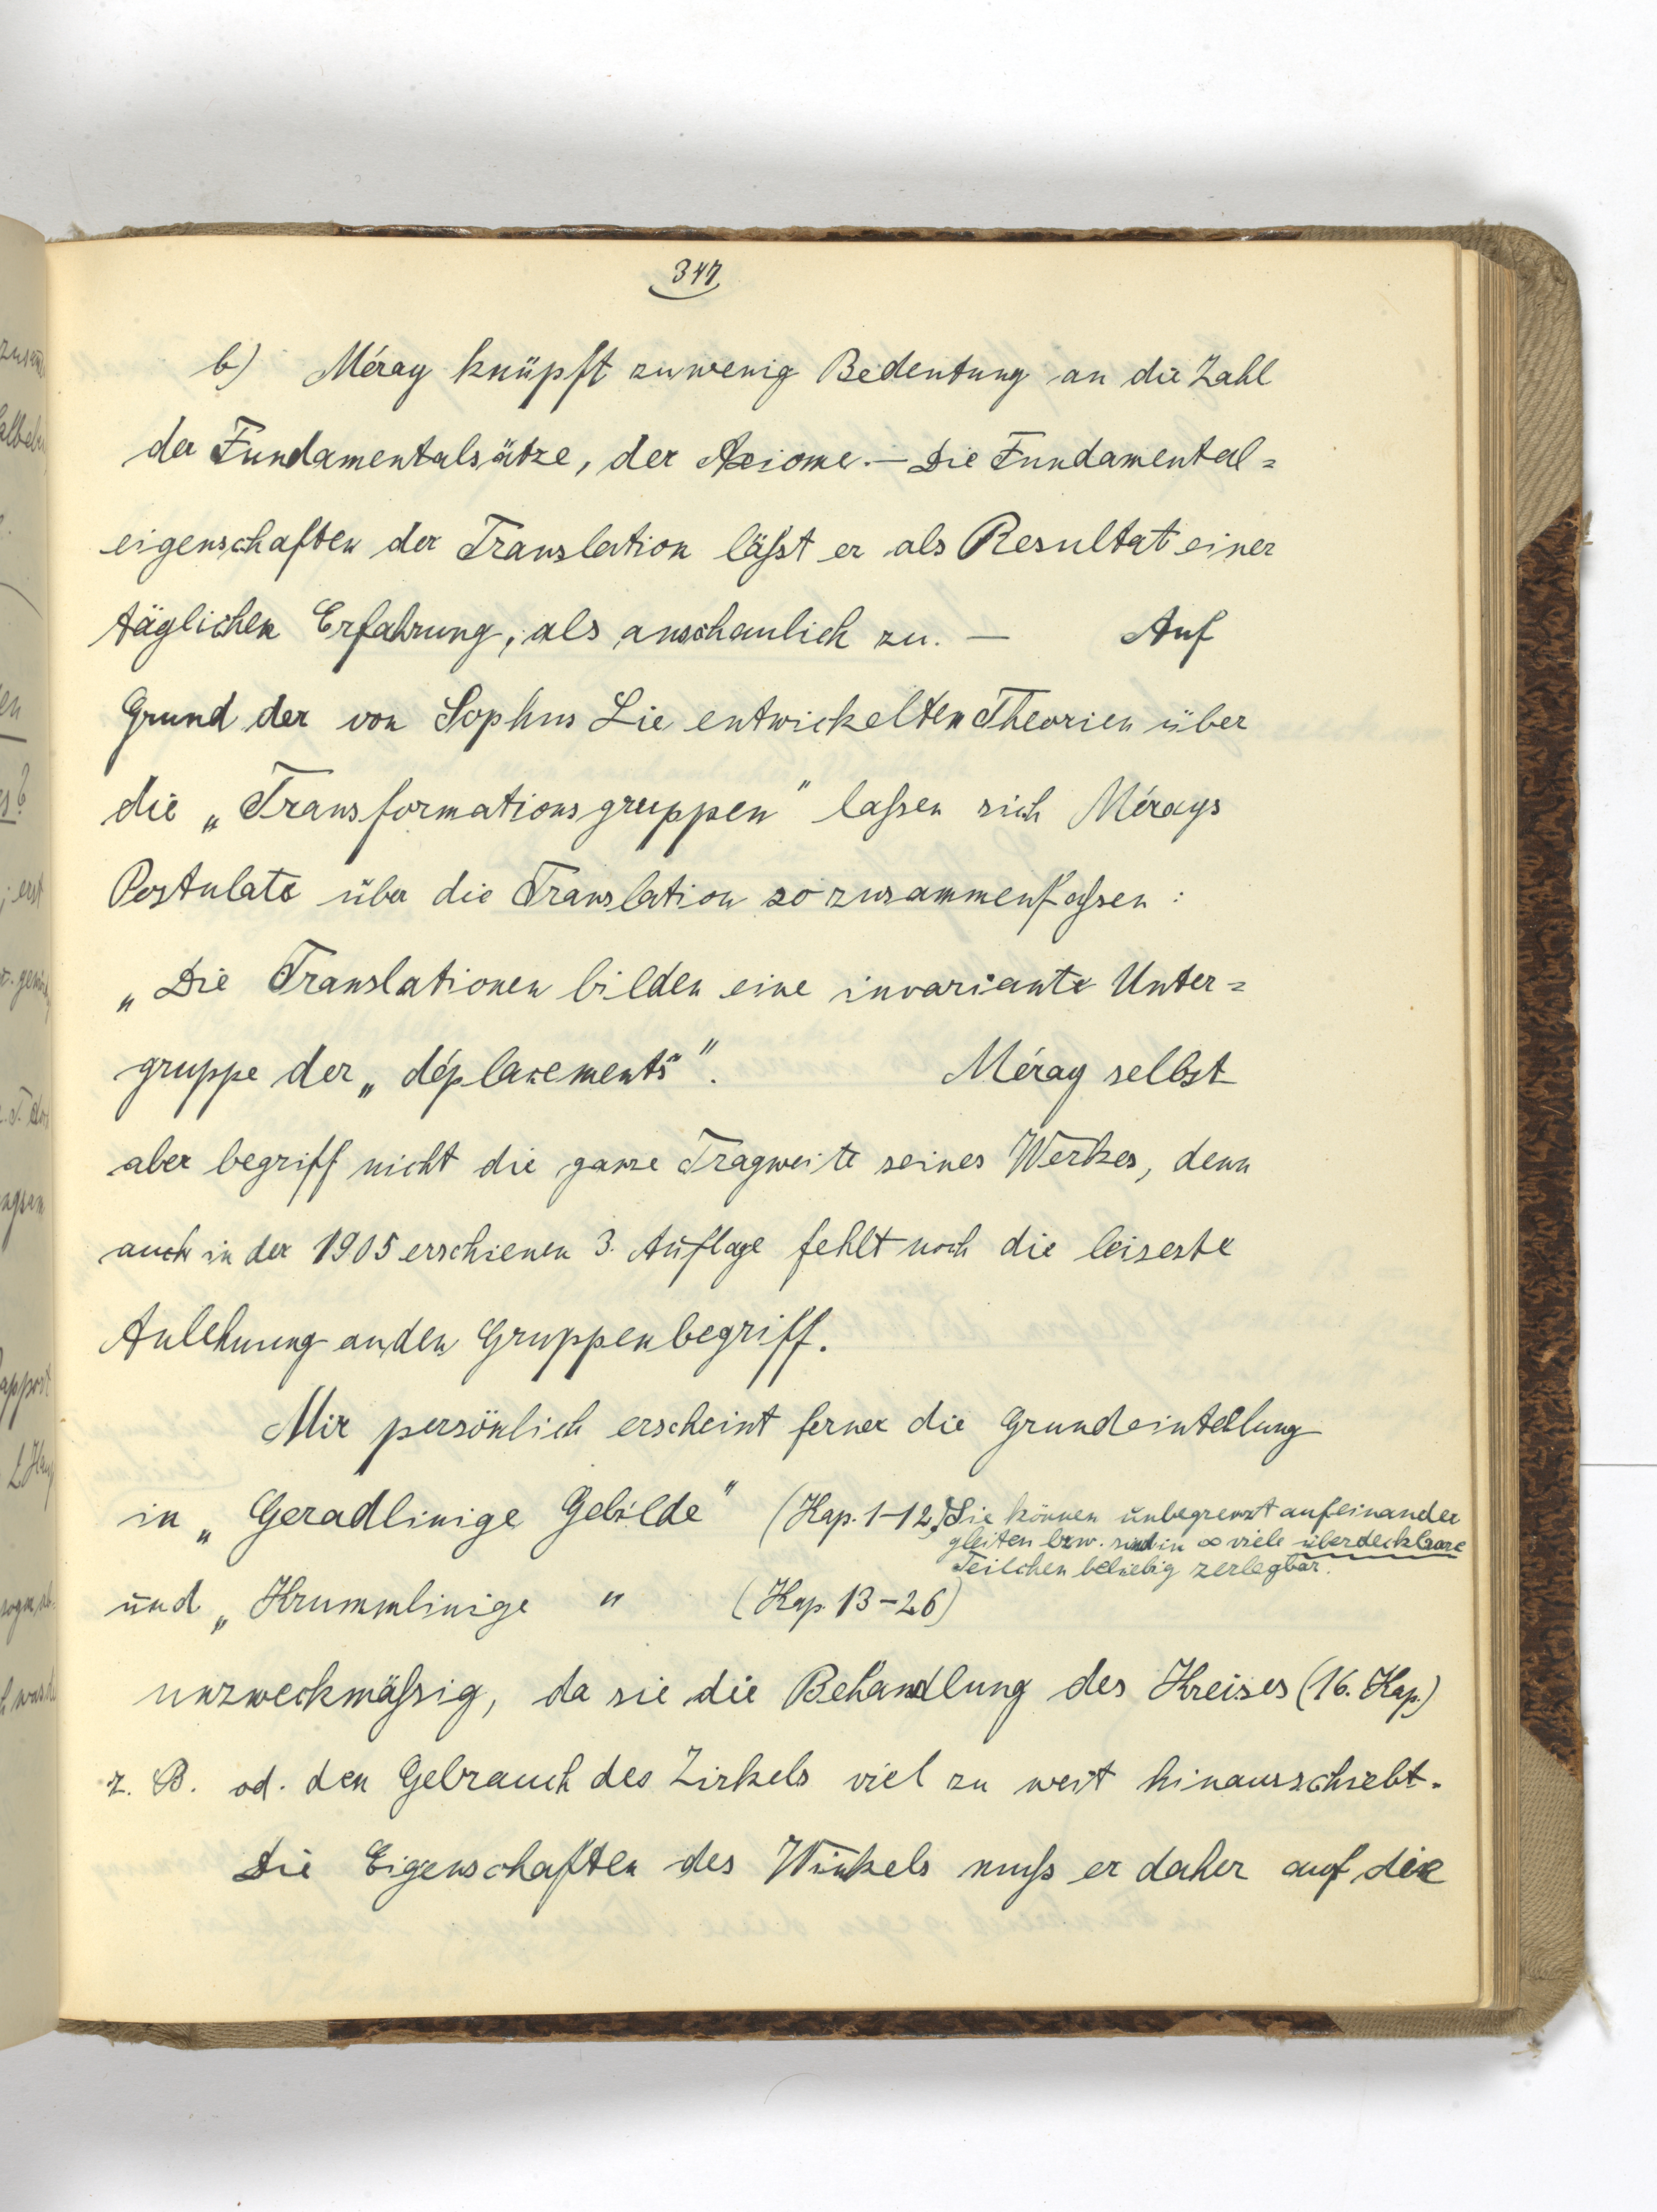 347
b) Méray knüpft zuwenig Bedeutung an die Zahl
der Fundamentalsätze, der Axiome. — Die Fundamental=
eigenschaften der Translation läßt er als Resultat einer
täglichen Erfahrung, als anschaulich zu. — Auf
Grund der von Sophus Lie entwickelten Theorien über
die „Transformationsgruppen" laßen sich Mérays
Postulate über die Translation so zusammenfaßen :
„Die Translationen bilden eine invariante Unter=
gruppe der „déplacements"". Méray selbst
aber begriff nicht die ganze Tragweite seines Werkes, denn
auch in der 1905 erschienen 3. Auflage fehlt noch die leiseste
Anlehnung an den Gruppenbegriff.
Mir persönlich erscheint ferner die Grundeinteilung
in „Geradlinige Gebilde" (Kap. 1-12) Sie können unbegrenzt aufeinander
gleiten bzw. sind in ∞ viele überdeckbare
Teilchen beliebig zerlegbar.
und „Krummlinige " (Kap. 13-26)
unzweckmäßig, da sie die Behandlung des Kreises (16. Kap.)
z. B. od. den Gebrauch des Zirkels viel zu weit hinausschiebt.
Die Eigenschaften des Winkels muß er daher auf die